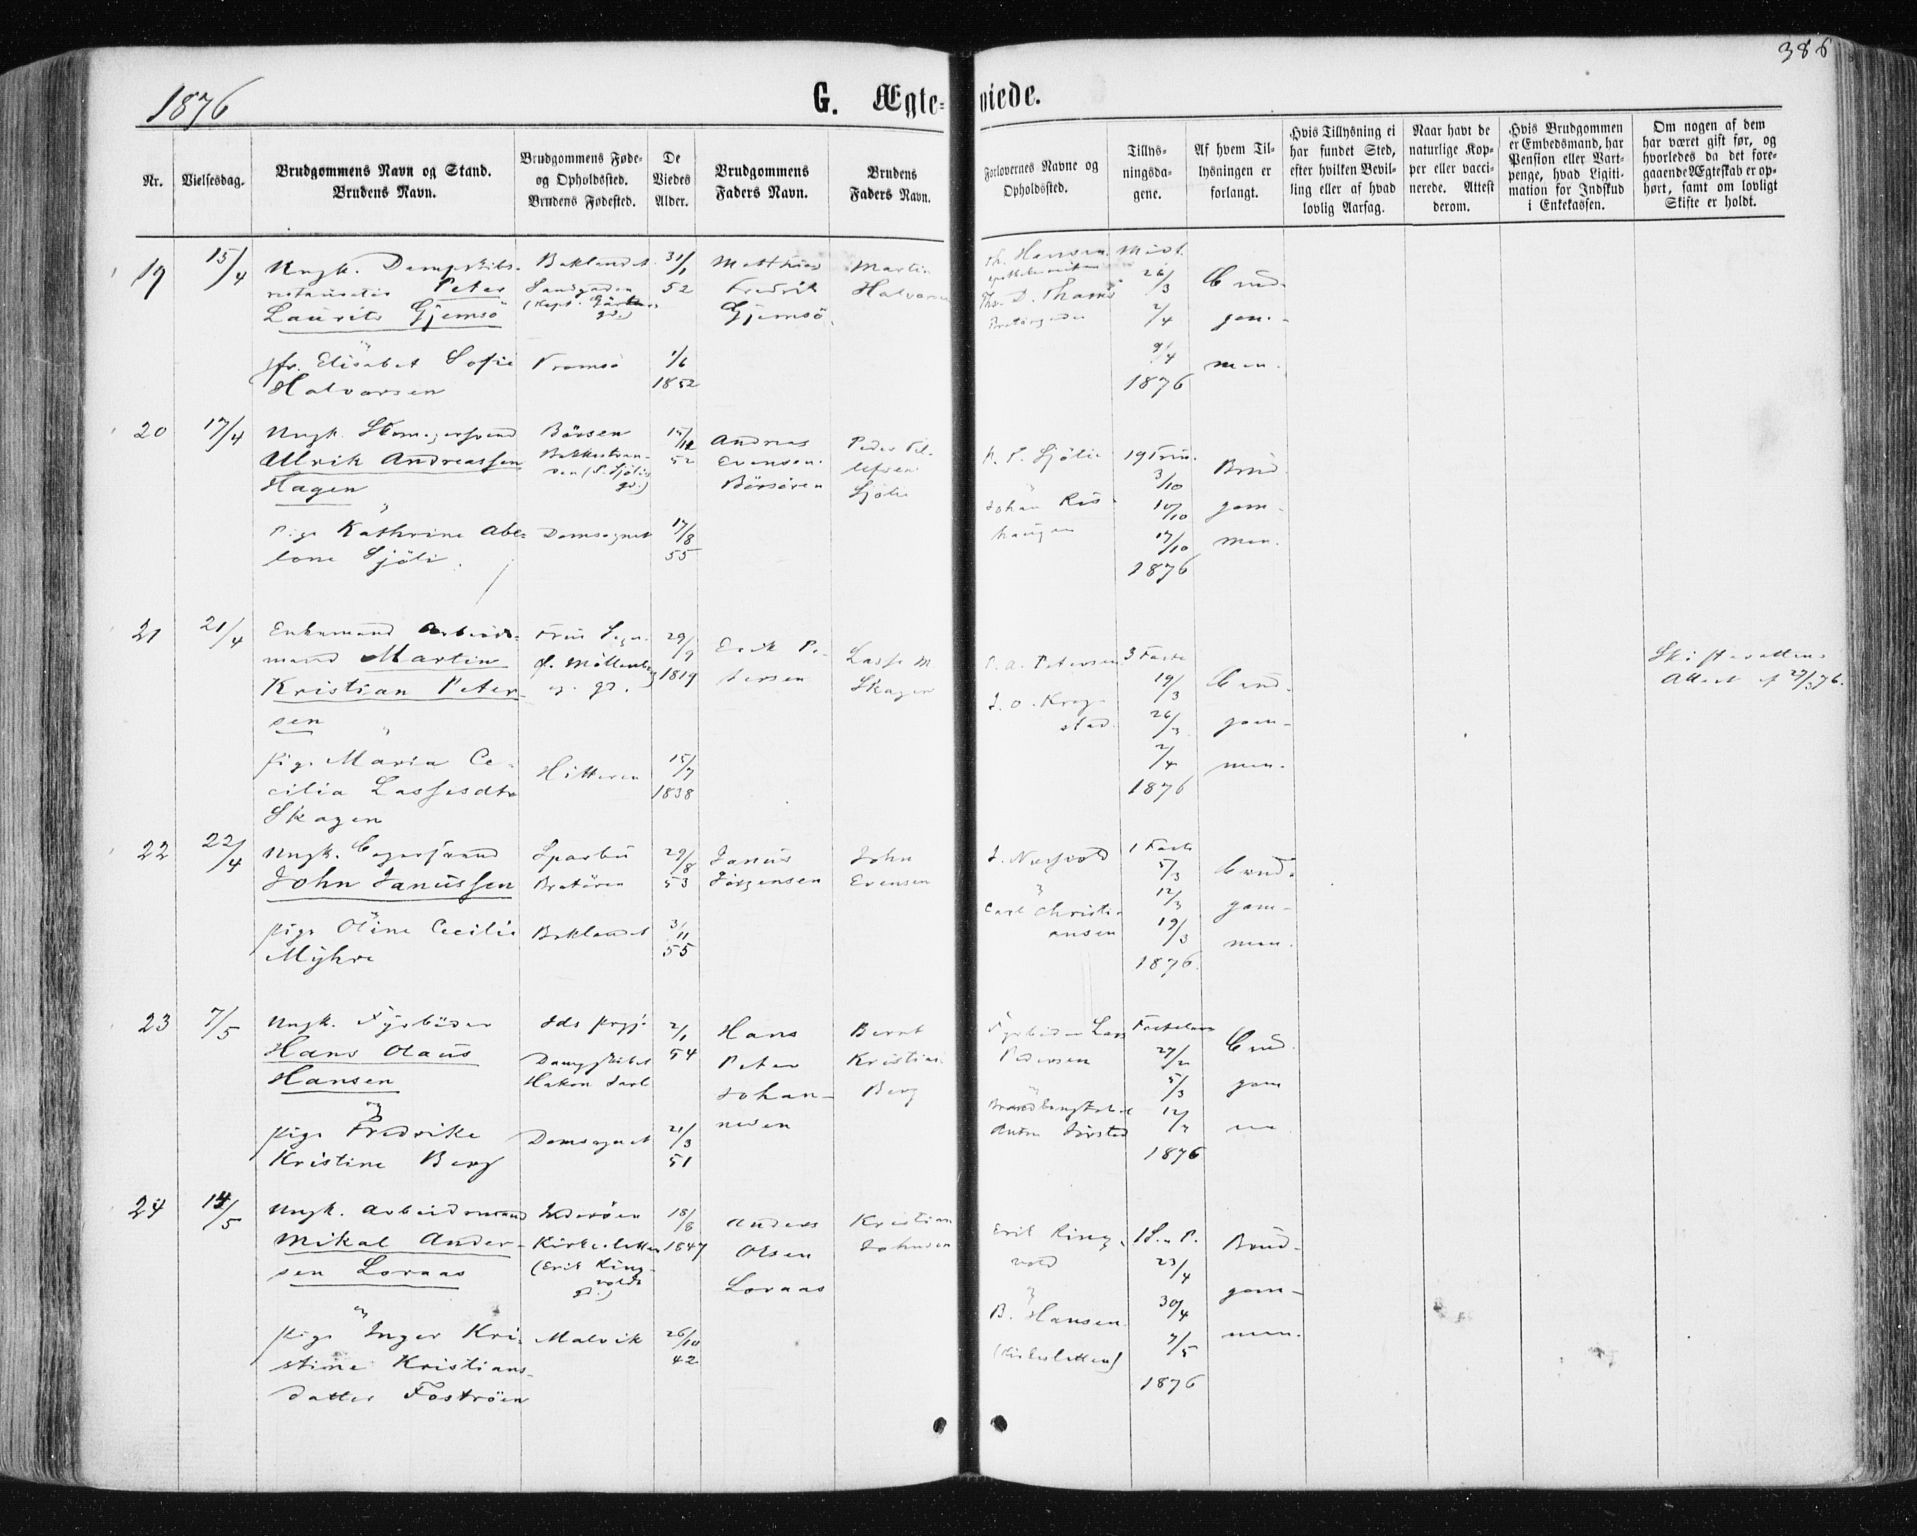 386
1876
G. Ægte-
viede.
Nr.
Vielsesdag.
Brudgommens Navn og Stand.
Brudens Navn.
Brudgommens Føde-
og Opholdssted.
Brudens Fødested.
De
Viedes
Alder.
Brudgommens
Faders Navn.
Brudens
Faders Navn.
Forlovernes Navne og
Opholdssted.
Tillys-
ningsda-
gene.
Af hvem Til-
lysningen er
forlangt.
Hvis Tillysning ei
har fundet Sted,
efter hvilken Bevil-
ling eller af hvad
lovlig Aarsag.
Naar havt de
naturlige Kop-
per eller vacci-
nerede. Attest
derom.
Hvis Brudgommen
er Embedsmand, har
Pension eller Vart-
penge, hvad Ligiti-
mation for Indskud
i Enkekassen.
Om nogen af dem
har været gift før, og
hvorledes da det fore-
gaaende Ægteskab er op-
hørt, samt om lovligt
Skifte er holdt.
19
15/4
Ungk. Dampskibs-
Peter
Laurits Gjemsö
jfr. Elisabet Sofie
Halvorsen
Baklandet
Sandgaden
Tromsö
31/1
52
1/6
1852
Matthias
Fredrik
Gjemsö.
Martin
Halvorsen
Th. Hansen
26/3
2/4
9/4
1876
Brud-
gom-
men.
20
17/4
Ungk.
Ulrik Andreassen
Hagen
Pige Kathrine Abe-
lone Sjöli.
Börsen
Domsognet
15/12
52
17/8
55
Andreas
Evensen
Börsören
Peder Til-
lefsen
Sjöli
P. T. Sjöli
Johan Ris-
haugen
19 Trin.
3/10
10/10
17/10
1876
Brud
gom-
men.
21
21/4
Enkemand Arbeids-
mand Martin
Kristian Peter-
sen
pige Maria Ce-
cilia Lassesdtr
Skagen
Hitteren
29/9
1819
15/7
1838
Erik Pe-
tersen
Lasse M
Skagen
P. A. Petersen
J. O. Krog-
stad.
3 Faste
19/3
26/3
2/4
1876
Brud-
gom-
men.
Skifterettens
Attest af 27/3 76.
22
22/4
Ungk. Bagersvend
John Janussen
pige Oline Cecilie
Myhre
Sparbu
Bratören
Baklandet
29/8
53
3/11
55
Janus
Jörgensen
John
Evensen
Carl Christi-
ansen
1 Faste
5/3
12/3
19/3
1876.
Brud-
gom-
men.
23
7/5
Ungk. Fyrböder
Hans Olaus
Hansen
pige Fredrike
Kristine Berg
Dampskibet
Hakon Jarl
Domsognet
2/1
54
21/3
51
Hans
Peter
Johan-
nesen
Bernt
Kristian
Berg
Fyrböder Lars
Pedersen
Fastelavn
27/2
5/3
12/3
1876
Brud
gom
24
14/5
Ungk. Arbeidsmand
Mikal Ander-
sen Loraas
pige Inger Kri-
stine Kristians-
datter Foströen
Inderöen
Kirkesletten
(Erik Ring-
volds
gd.)
Malvik
18/8
1847
26/10
42
Anders
Olsen
Loraas
Kristian
Johnsen
Erik Ring-
vold
B. Hansen
(Kirkesletten)
1 S. e. P.
23/4
30/4
7/5
1876
Brud-
gom-
men.